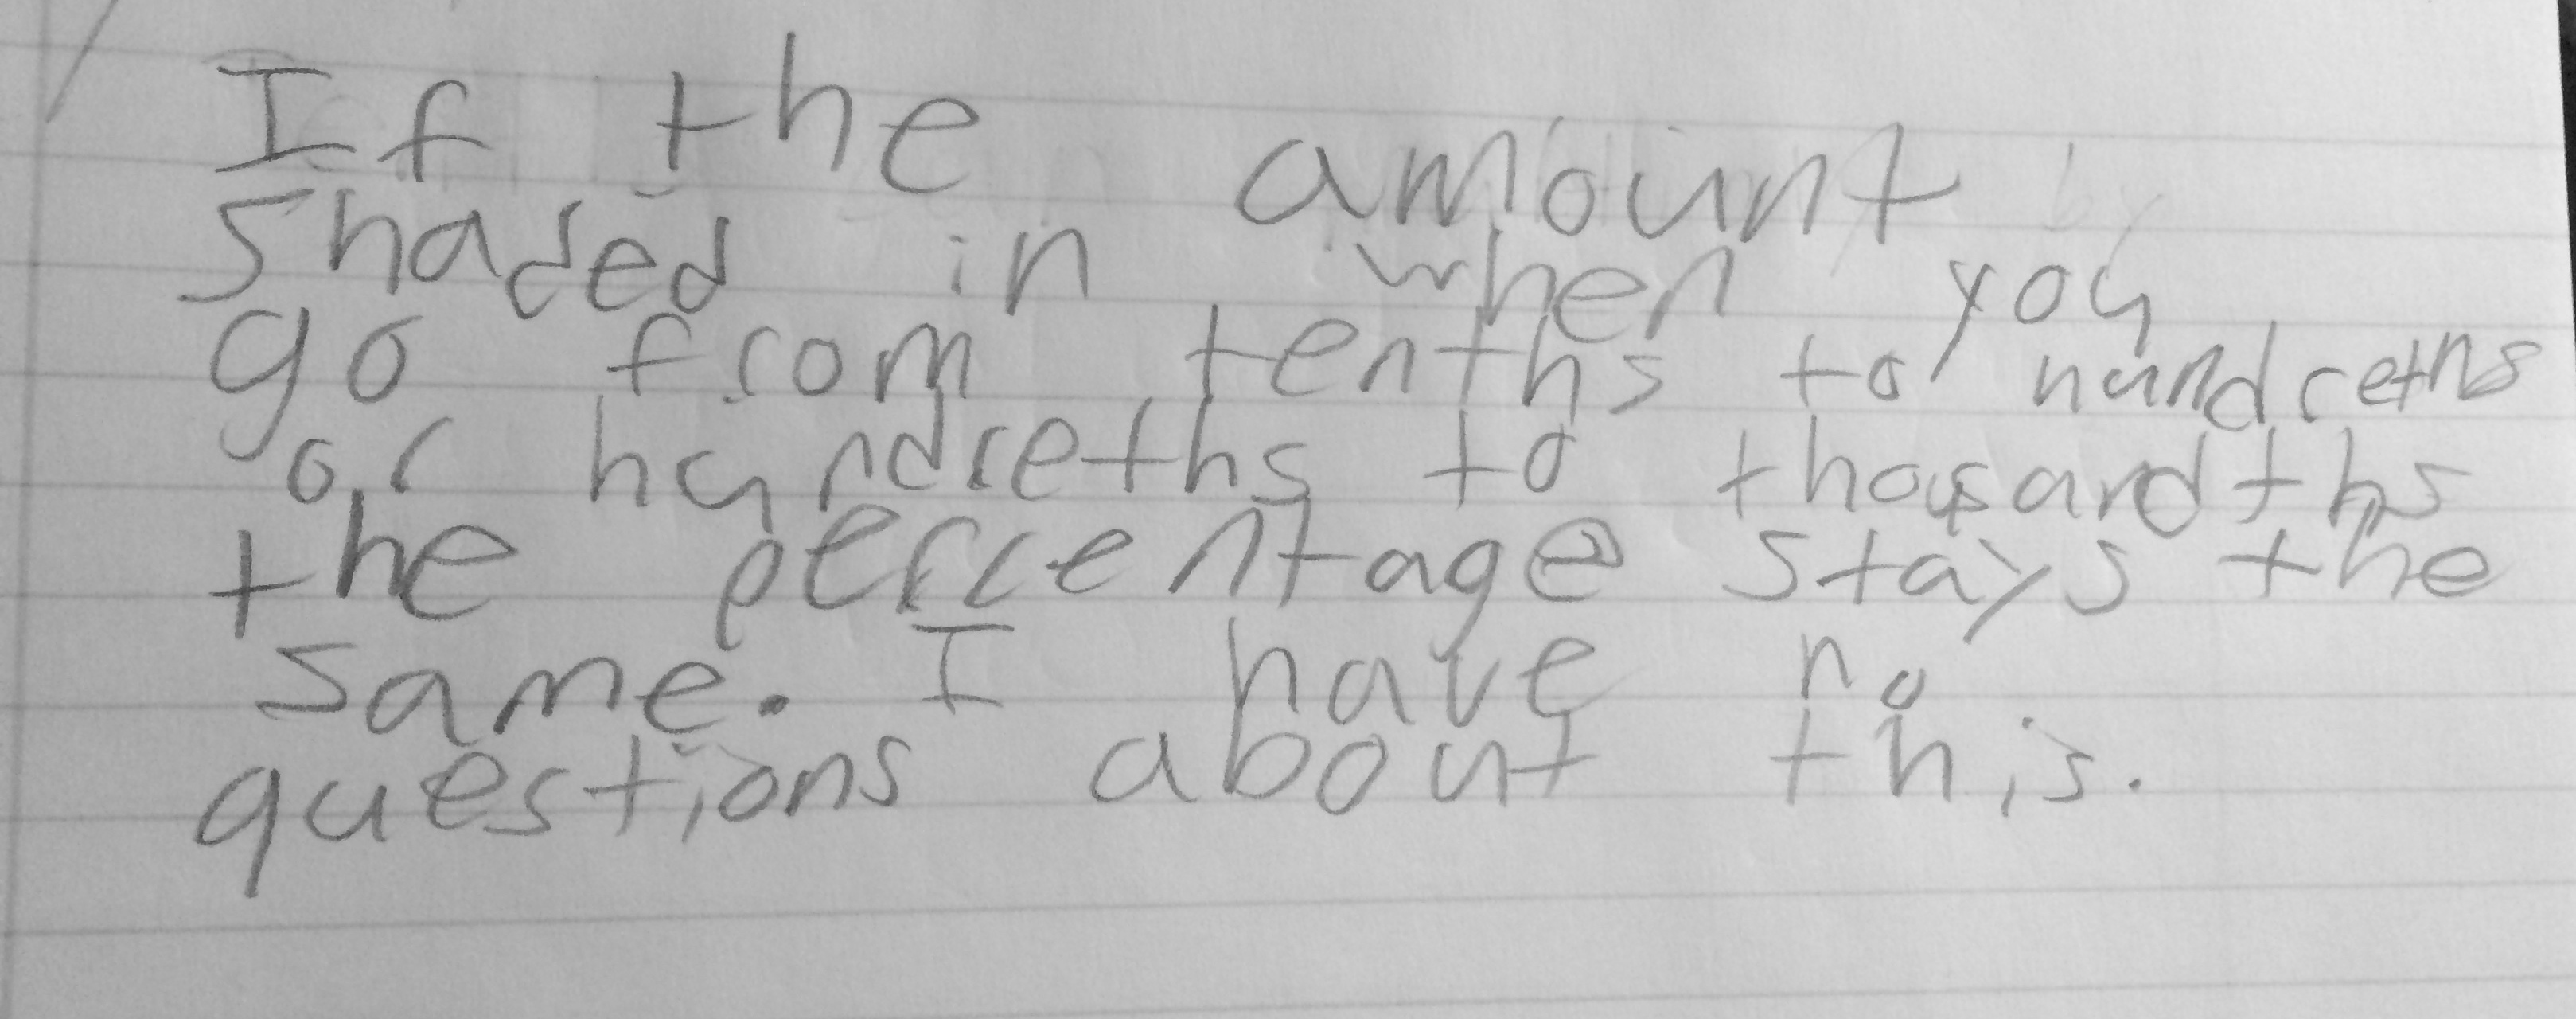 If the amount
shaded in when you
go from tenths to hundreths
or hundreths to thousandths
the percentage stays the
same. I have no
questions about this.